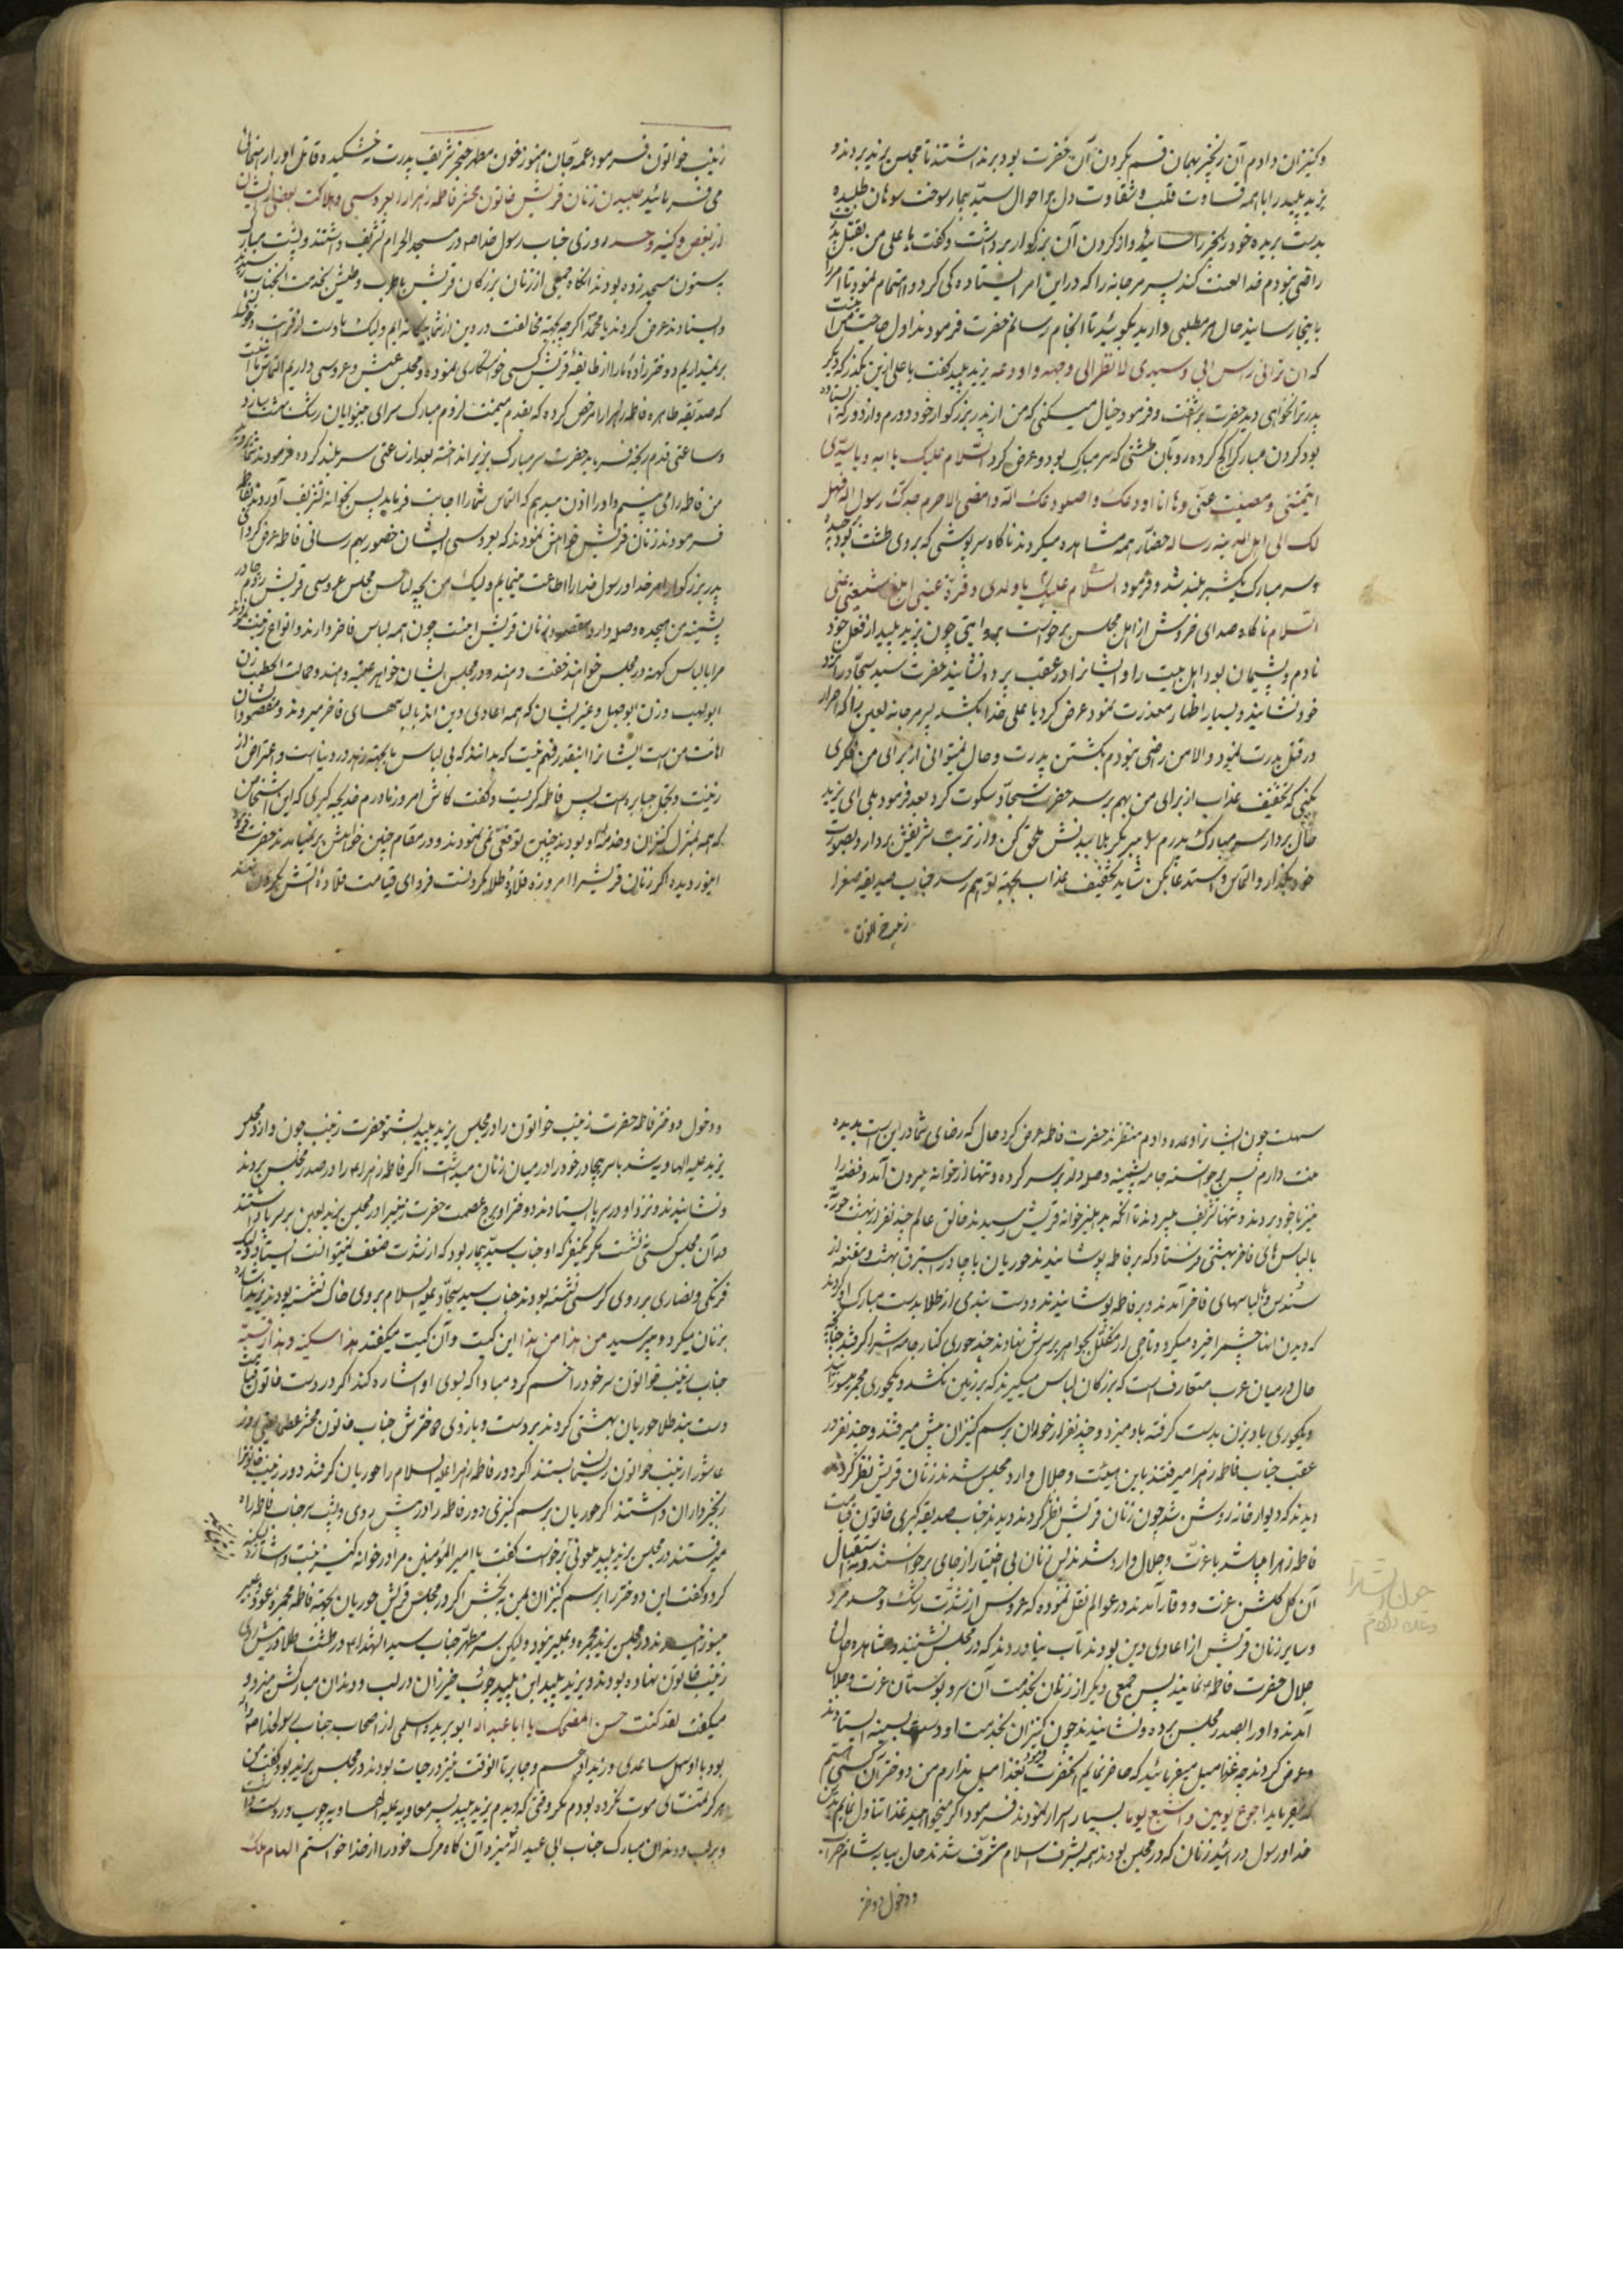 و کنیزان دادم آن زنجیر بهمان قسم بکردن آن حضرت بود برنداشتند تا مجلس یزید بردند و
یزید پلید را با همه قساوت قلب و شقاوت دل بر احوال سید بیمار سوخت سوهان طلبیده
بدست بریده خود زنجیر را سائیده و از کردن آن بزرکوار برداشت و کفت یا علی من بقتل پدرت
راضی نبودم خدا لعنت کند پسر مرجانه را که در این امر ایستاده کی کرد و اهتمام نمود تا امر را
باینجا رسانید حال هر مطلبی دارید بکوئید تا انجام رسانم حضرت فرمودند اول حاجت من اینست
که ان ترانی راس ابی و سیدی لانظر الی وجهه و اودعه یزید پلید کفت یا علی ازین بکذر که دیکر
پدر ترا نخواهی دید حضرت برآشفت و فرمود خیال میکنی که من از پدر بزرکوار خود دورم و از دور که ایستاده
بود کردن مبارک را کج کرده رو بآن طشتی که سر مبارک بود و عرض کرد السلام علیک یا ابه و یا سیدی
ایتمتنی و مضیت عنی و ها انا اودعک و امضی الی حرم جدک رسول الله فهل
لک الی اهل المدینه رساله حضار همه مشاهده میکردند ناکاه سرپوشی که بروی طشت بود
و سر مبارک یکشبر بلند شد و فرمود السلام علیک یا ولدی و قرة عینی ابلغ شیعتی عنی
السلام ناکاه صدای خروش از اهل مجلس برخواست بروایتی چون یزید پلید از فعل خود
نادم و پشیمان بود اهل بیت را و ایشانرا در عقب پرده نشانید حضرت سید سجاد را نزد
خود نشانید و بسیار اظهار معذرت نمود عرض کرد یا علی خدا بکشد پسر مرجانه لعین را که اصرار
در قتل پدرت نمود و الا من راضی نبودم بکشتن پدرت و حال میتوانی از برای من فکری
بکنی که تخفیف عذاب از برای من بهم برسد حضرت سجاد سکوت کرد بعد فرمود بلی ای یزید
حال بردار سر مبارک پدرم را ببر بکربلا ببدنش ملحق کن و از تربت شریفش بردار و بصورت
خود بکذار و التماس و استدعا بکن شاید تخفیف عذاب بجهة تو بهم رسد جناب صدیقه صغرا
زینب خواتون
زینب خواتون فرمود عمه جان هنوز خون مطهر حنجر شریف پدرت نخشکیده قاتل او را راهنمائی
می فرمائید طلبیدن زنان قریش خاتون محشر فاطمه زهرا را بعروسی و هلاکت بعضی از ایشان
از بغض و کینه و حسد روزی جناب رسول خدا ص در مسجد الحرام تشریف داشتند و پشت مبارک
بستون مسجد زده بودند انکاه جمعی از زنان بزرکان قریش با طرب و طیش بخدمت انجناب
و ایستادند عرض کردند یا محمد اکرچه بجهة مخالفت در دین از شما بیکانه ایم ولیک یا دوست از قربت و خویشی
برنمیداریم دو دختر زاده ما را از طایفه قریش کسی خواستکاری نموده و مجلس عیش و عروسی داریم التماس ما اینست
که صدیقه طاهره فاطمه زهرا را مرخص کرده که بقدم میمنت لزوم مبارک سرای
و ساعتی قدم رنجه فرماید حضرت سر مبارک بزیر انداخته بعد از ساعتی سر بلند کرده فرمودند
من فاطمه را می بینم و او را اذن میدهم که التماس شما را اجابت فرماید پس بخوانه تشریف آوردند بفاطمه
فرمودند زنان قریش خواهش نمودند که بعروسی ایشان حضور بهم رسانی فاطمه عرض کرد ای
پدر بزرکوار امر خدا و رسول خدا را اطاعت مینمایم ولیک من بچه لباس مجلس عروسی قریش روم چادر
پشمینه من هیجده وصله دارد مقصود زنان قریش اینست چون همه لباس فاخر دارند و انواع زینت
مرا با لباس کهنه در مجلس خوانند خفت دهند و در مجلس ایشان خواهر عتبه و هند و حمالت الحطب زن
ابولهب و زن ابوجهل و غیر ایشان که همه اعادی دین اند با لباسهای فاخر میروند و مقصودشان
اهانت من است ایشانرا اینقدر فهم نیست که بدانند که بی لباس ما بجهة زهد در دنیا است و اعتراض از
زینت و تجمل جبابره است پس فاطمه کریست و کفت کاش امروز مادرم خدیجه کبری
که همه بمنزل کنیزان و خدمه او بودند چنین توقعی نمی نمودند و در مقام چنین خواهش برنمیامدند حضرت فرمود
ایتور دیده اکر زنان قریش را امروزه قلاده طلا بکردنست فردای قیامت قلاده آتش بکردن
سهلست چون ایشانرا وعده دادم منتظرند حضرت فاطمه عرض کرد حال که رضای شما در این است بدیده
منت دارم پس برخواسته جامه پشمینه وصله دار بر سر کرده و تنها از خوانه بیرون آمد و فضه را
نیز با خود بردند و تنها تشریف میبردند تا انکه بدهلیز خوانه قریش رسیدند خالق عالم چند نفر از بهشت حوریه
با لباس های فاخر بهشتی فرستاد که بر فاطمه پوشانیدند حوریان با چادر استبرق بهشت و مقنعه از
سندس و لباسهای فاخر آمدند و بر فاطمه پوشانیدند و دست بندی از طلا بدست مبارک او کردند
که دیدن انها چشم را خیره میکرد و تاجی از مکلل بجواهر بر سرش نهادند چند حوری کنار جامه اش را کرفتند
حال در میان عرب متعارف است که بزرکان لباس میکیرند که بر زمین نکشد و یکحوری مجمر میسوزانید
و یکحوری بادبزن بدست کرفته باد میزد و چند نفر از حوران برسم کنیزان پیش میرفتند و چند نفر در
عقب جناب فاطمه زهرا میرفتند باین هیئت و جلال وارد مجلس شدند زنان قریش نظر کردند
دیدند که دیوار خانه روشن شد چون زنان قریش نظر کردند دیدند جناب صدیقه کبری خاتون قیامت
فاطمه زهرا میباشد با عزت و جلال وارد شدند پس زنان بی اختیار از جای برخواستند و به استقبال
آن کل کلشن عزت و وقار آمدند در عوالم نقل نموده که عروس از شدت رشک و حسد مرد
و سایر زنان قریش از اعادی دین بودند تاب نیاوردند که در مجلس بنشینند و مشاهده جاه
جلال حضرت فاطمه نمایند پس جمعی دیکر از زنان بخدمت آن سرو بوستان عزت و جلال
آمدند و او را بصدر مجلس برده و نشانیدند چون کنیزان بخدمت او دست بسینه ایستادند
و عرض کردند چه غذا میل میفرمائید که حاضر نمایم انحضرت فرمود بغذا میل ندارم من دختر آن کسی هستم
که میفرماید اجوع یومین و اشبع یوما بسیار اسرار نمودند فرمود اکر میخواهید غذا تناول نمایم بدین
خدا و رسول در ائید زنان که در مجلس بودند همه بشرف اسلام مشرف شدند حال بیا به شام خراب
و دخول دو دختر
و دخول دو دختر فاطمه حضرت زینب خواتون را در مجلس یزید پلید بشنو حضرت زینب چون وارد مجلس
یزید علیه الهاویه شد با سر بیچادر خود را در میان زنان میداشت اکر فاطمه زهرا را در صدر مجلس بردند
و نشانیدند و نزد او در سر پا ایستادند دو دختر او برج عصمت حضرت زینب را در مجلس یزید لعین بر سر پا داشتند
در آن مجلس کسی نشست مکر یکنفر که او جناب سید بیمار بود که از شدت ضعف نمیتوانست ایستاد ولیک
فرنکی و نصاری بر روی کرسی نشسته بودند جناب سید سجاد علیه السلام بروی خاک نشسته بودند
بزنان میکرد و میپرسید من هذا من هذا این کیست و آن کیست میکفتند هذا سکینه و هذا رقیه
جناب زینب خواتون سر خود را خم کرد مبادا که بسوی او اشاره کند اکر در دست خاتون قیامت
دست بند طلا حوریان بهشتی کردند بر دست و بازوی دخترش جناب خاتون محشر عظمی یعنی روز
عاشورا زینب خواتون ریسمان بستند اکر دور فاطمه زهرا علیه السلام را حوریان کرفتند دور زینب خواتونرا
زنجیرداران داشتند اکر حوریان برسم کنیزی دور فاطمه را در پیش روی و پشت سر جناب فاطمه راه
میرفتند در مجلس یزید پلید ملعونی برخواست کفت یا امیر المؤمنین مرا در خوانه کنیز نیست و اشاره بسکینه
کرد و کفت این دو دختر را برسم کنیزان بمن ببخش اکر در مجلس قریش حوریان بجهة فاطمه مجمره و عود و عنبر
میسوزانیدند در مجلس یزید مجمره و عنبر نبود ولیکن سر مطهر جناب سید الشهدا در طشت طلا در پیش روی
زینب خاتون نهاده بودند و یزید پلید این پلید چوب خیزران در لب و دندان مبارکش میزد و
میکفت لقد کنت حسن المضحک یا ابا عبد الله ابو بریده اسلمی از اصحاب جناب رسولخدا ص
بود با او سهل ساعدی و زید ارقم و جابر تا انوقت نیز در حیات بودند در مجلس یزید بود کفت من
هرکز تمنای موت نکرده بودم مکر وقتی که دیدم یزید پلید پسر معاویه علیه الهاویه چوب در دست داشت
و بر لب و دندان مبارک جناب ابی عبد الله میزد آن کاه مرک خود را از خدا خواستم العام ملک